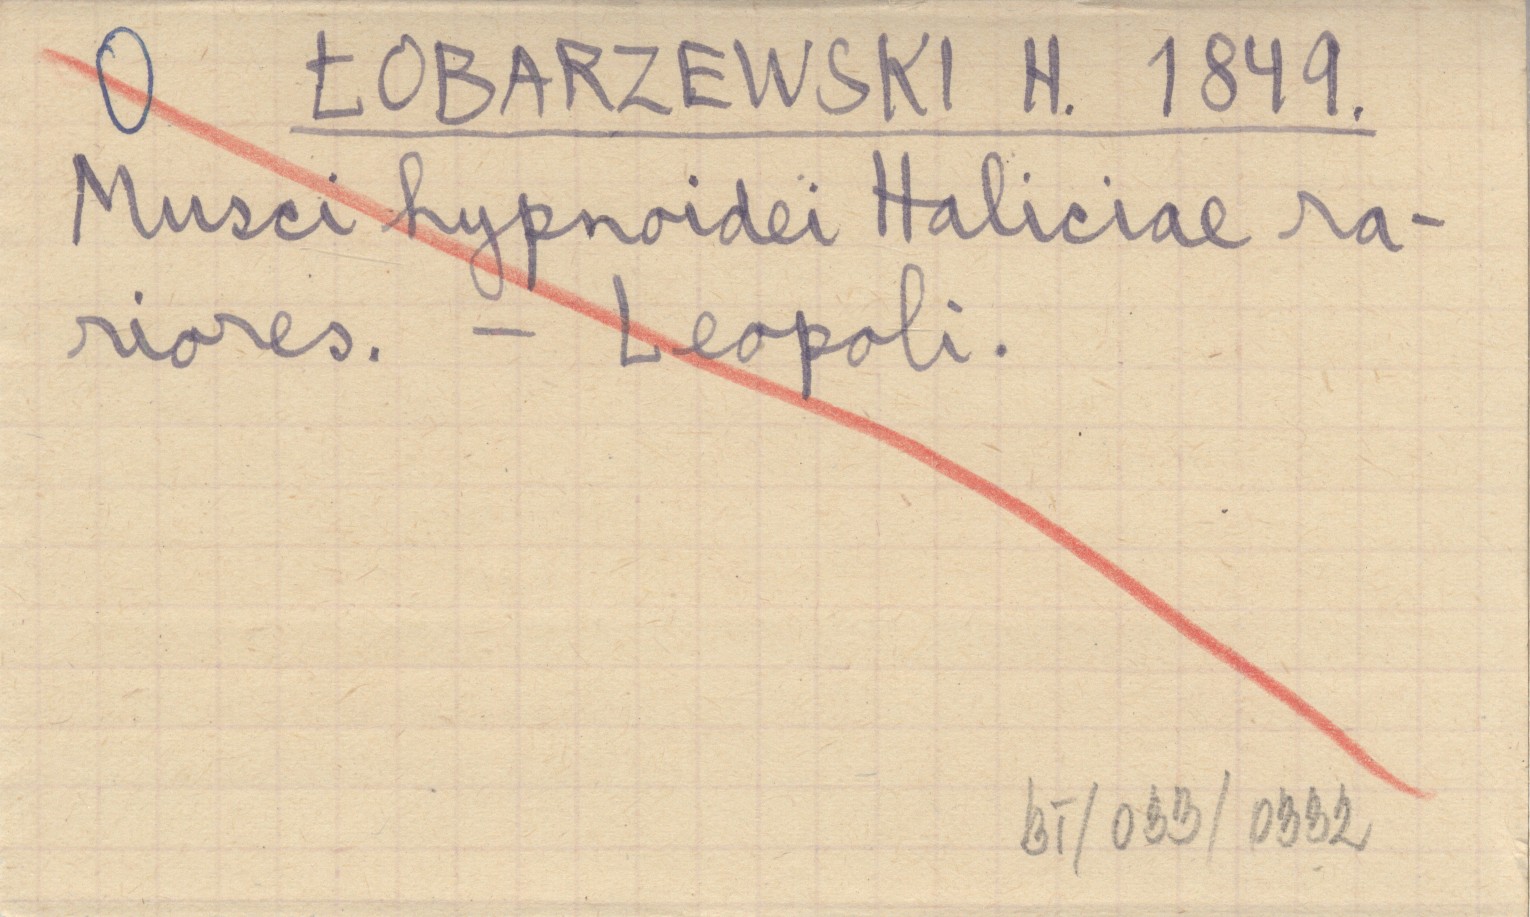 O ŁOBARZEWSKI H. 1849.
Musci hypnoidei Haliciae ra-
riores. — Leopoli.
BT/033/0332